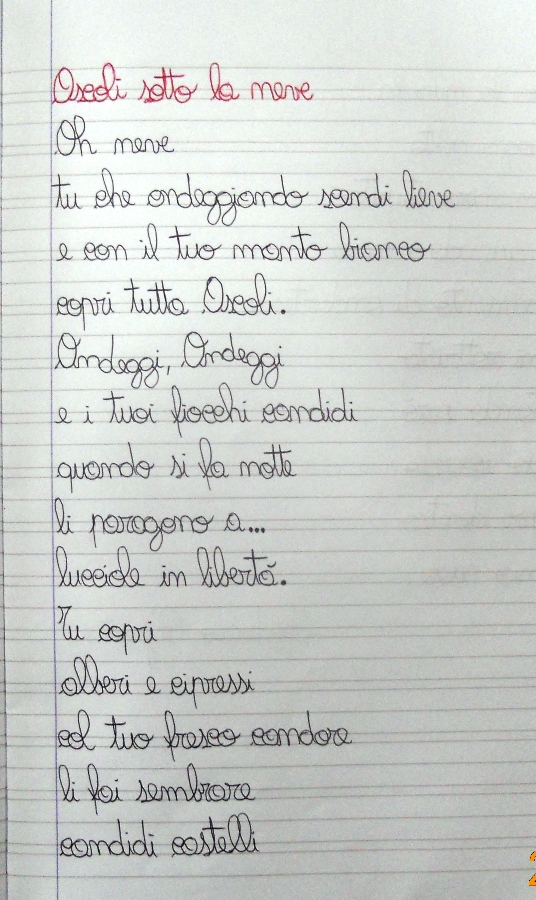 Ascoli sotto la neve
Oh neve
tu che ondeggiando scendi lieve
e con il tuo manto bianco
copri tutta Ascoli.
Ondeggi, Ondeggi
e i tuoi fiocchi candidi
quando si fa notte
li paragono a...
lucciole in libertà.
Tu copri
alberi e cipressi
col tuo fresco candore
li fai sembrare
candidi castelli